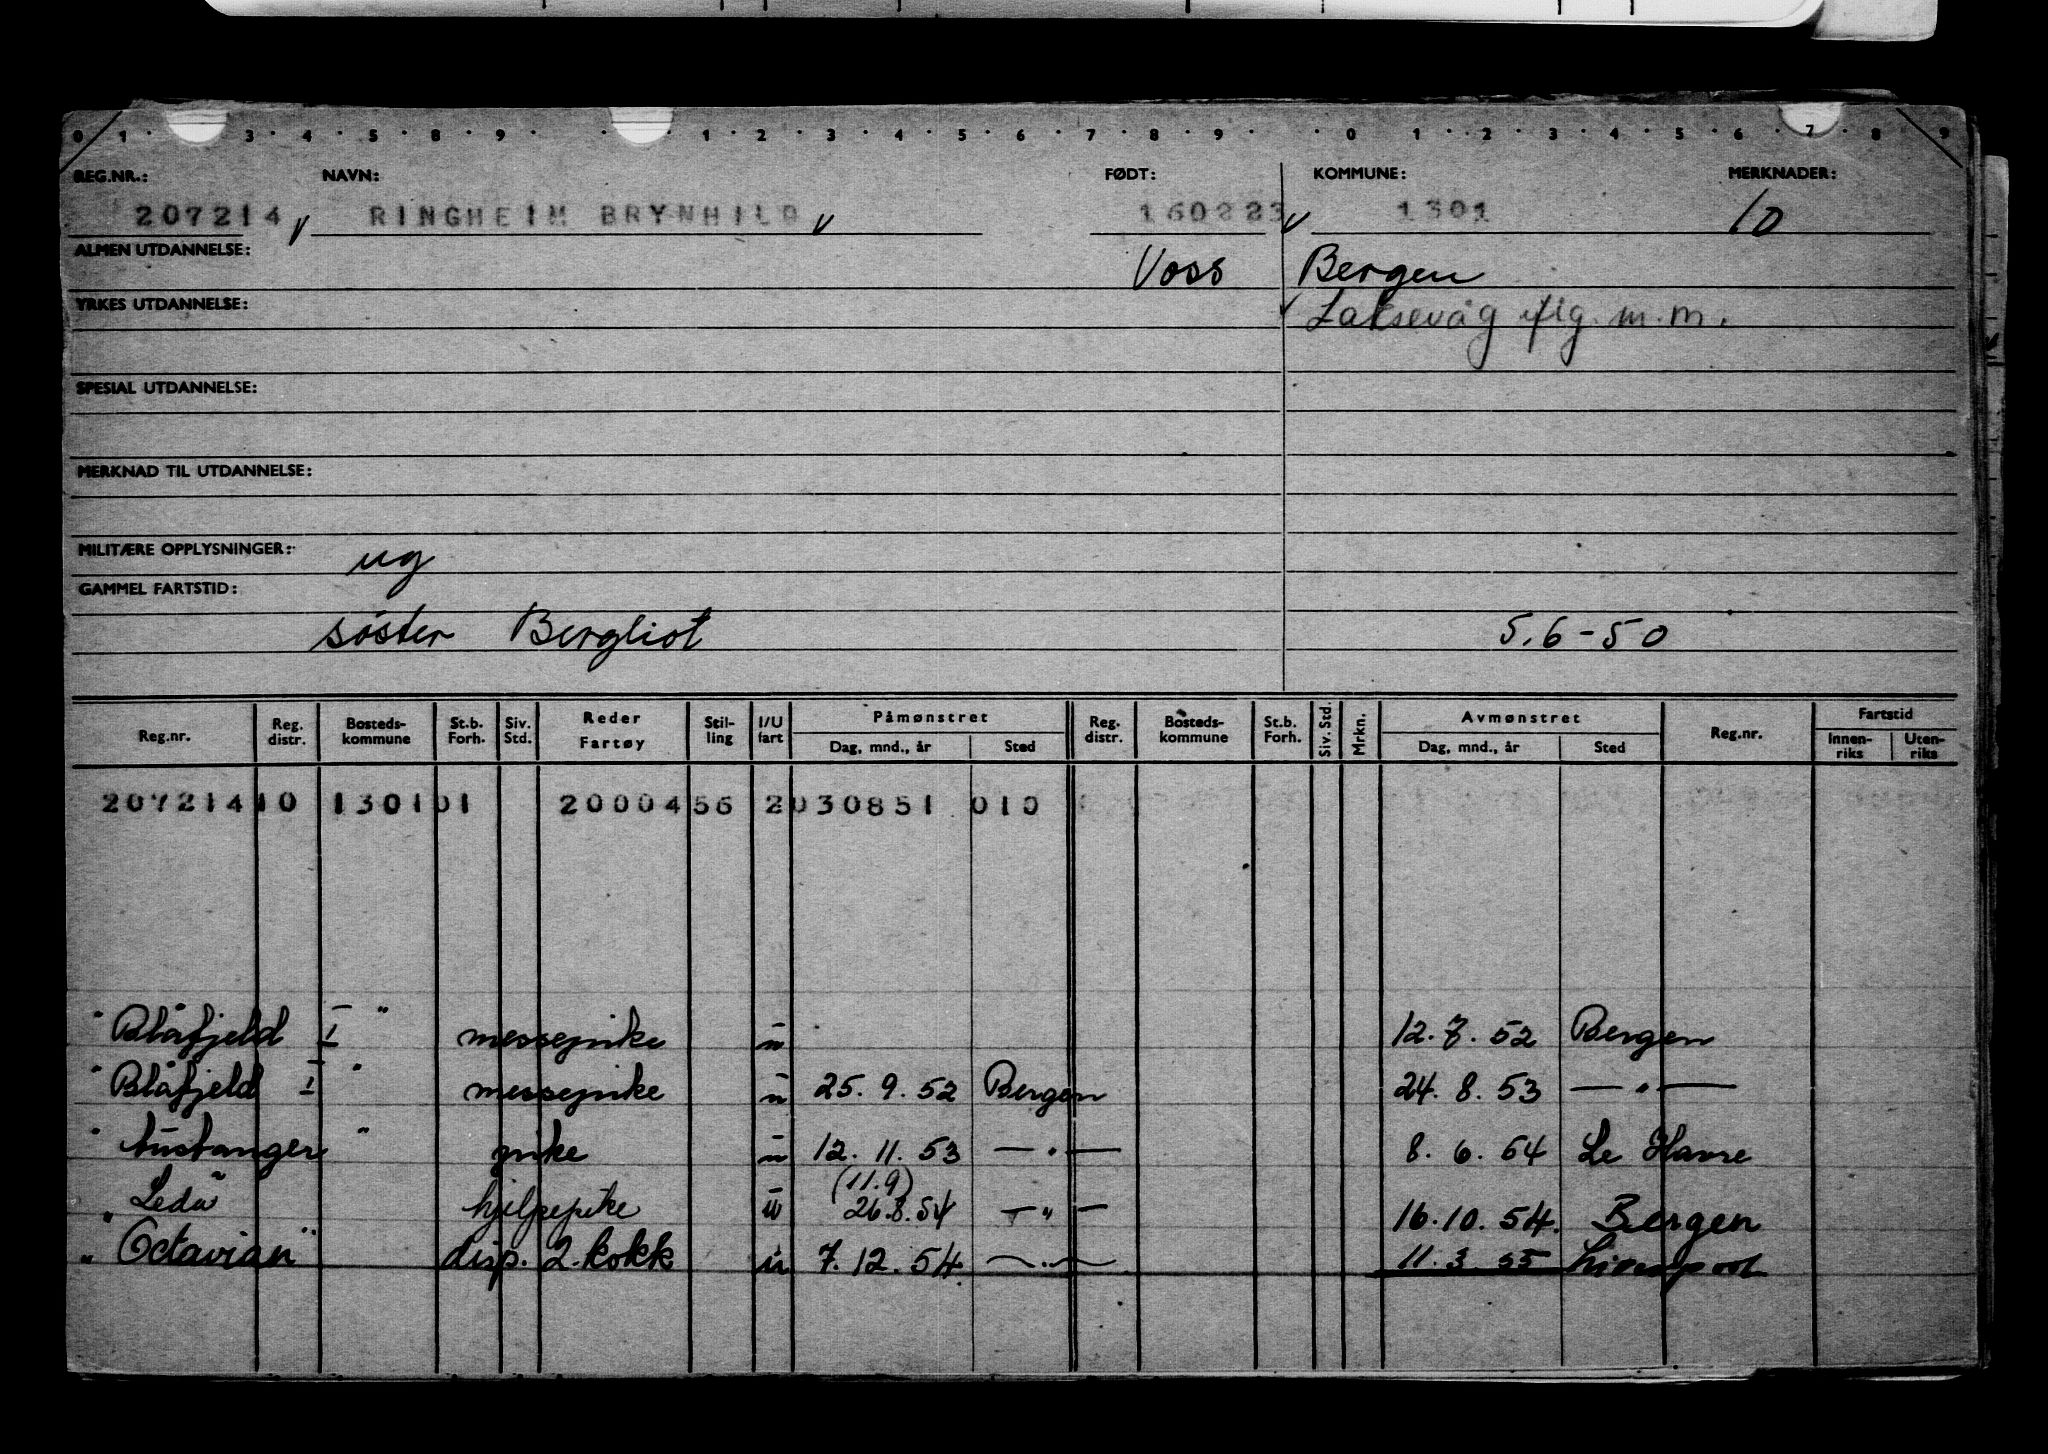 0 1 3 4 5 8 9 1 2 3 4 5 6 7 8 9 0 1 2 3 4 5 6 7 8 9
REG.NR.: NAVN: FØDT: KOMMUNE: MERKNADER:
207214 RINGHEIM BRYNHILD 160223 1301 10
ALMEN UTDANNELSE: Voss Bergen
YRKES UTDANNELSE: Laksevåg iflg. m.m.
SPESIAL UTDANNELSE:
MERKNAD TIL UTDANNELSE:
MILITÆRE OPPLYSNINGER: ug
GAMMEL FARTSTID:
søster Bergliot 5.6-50
Reg.nr. Reg. distr. Bosteds-kommune St.b. Forh. Siv. Std. Reder Fartøy Stil-ling I/U fart Påmønstret Dag, mnd., år Sted Reg. distr. Bosteds-kommune St.b. Forh. Siv. Std. Mrkn. Avmønstret Dag, mnd., år Sted Reg.nr. Fartstid Innen-riks Uten-riks
207214 10 1301 01 2000456 2 030851 010
" Blåfjeld I " messepike u 12.7.52 Bergen
" Blåfjeld I " messepike u 25.9.52 Bergen 24.8.53 — " —
" Austanger " pike u 12.11.53 — " — 8.6.54 Le Havre
(11.9)
" Leda " hjelpepike u 26.8.54 — " — 16.10.54. Bergen
" Octavian " disp. 2. kokk u 7.12.54. — " — 11.3.55 Liverpool